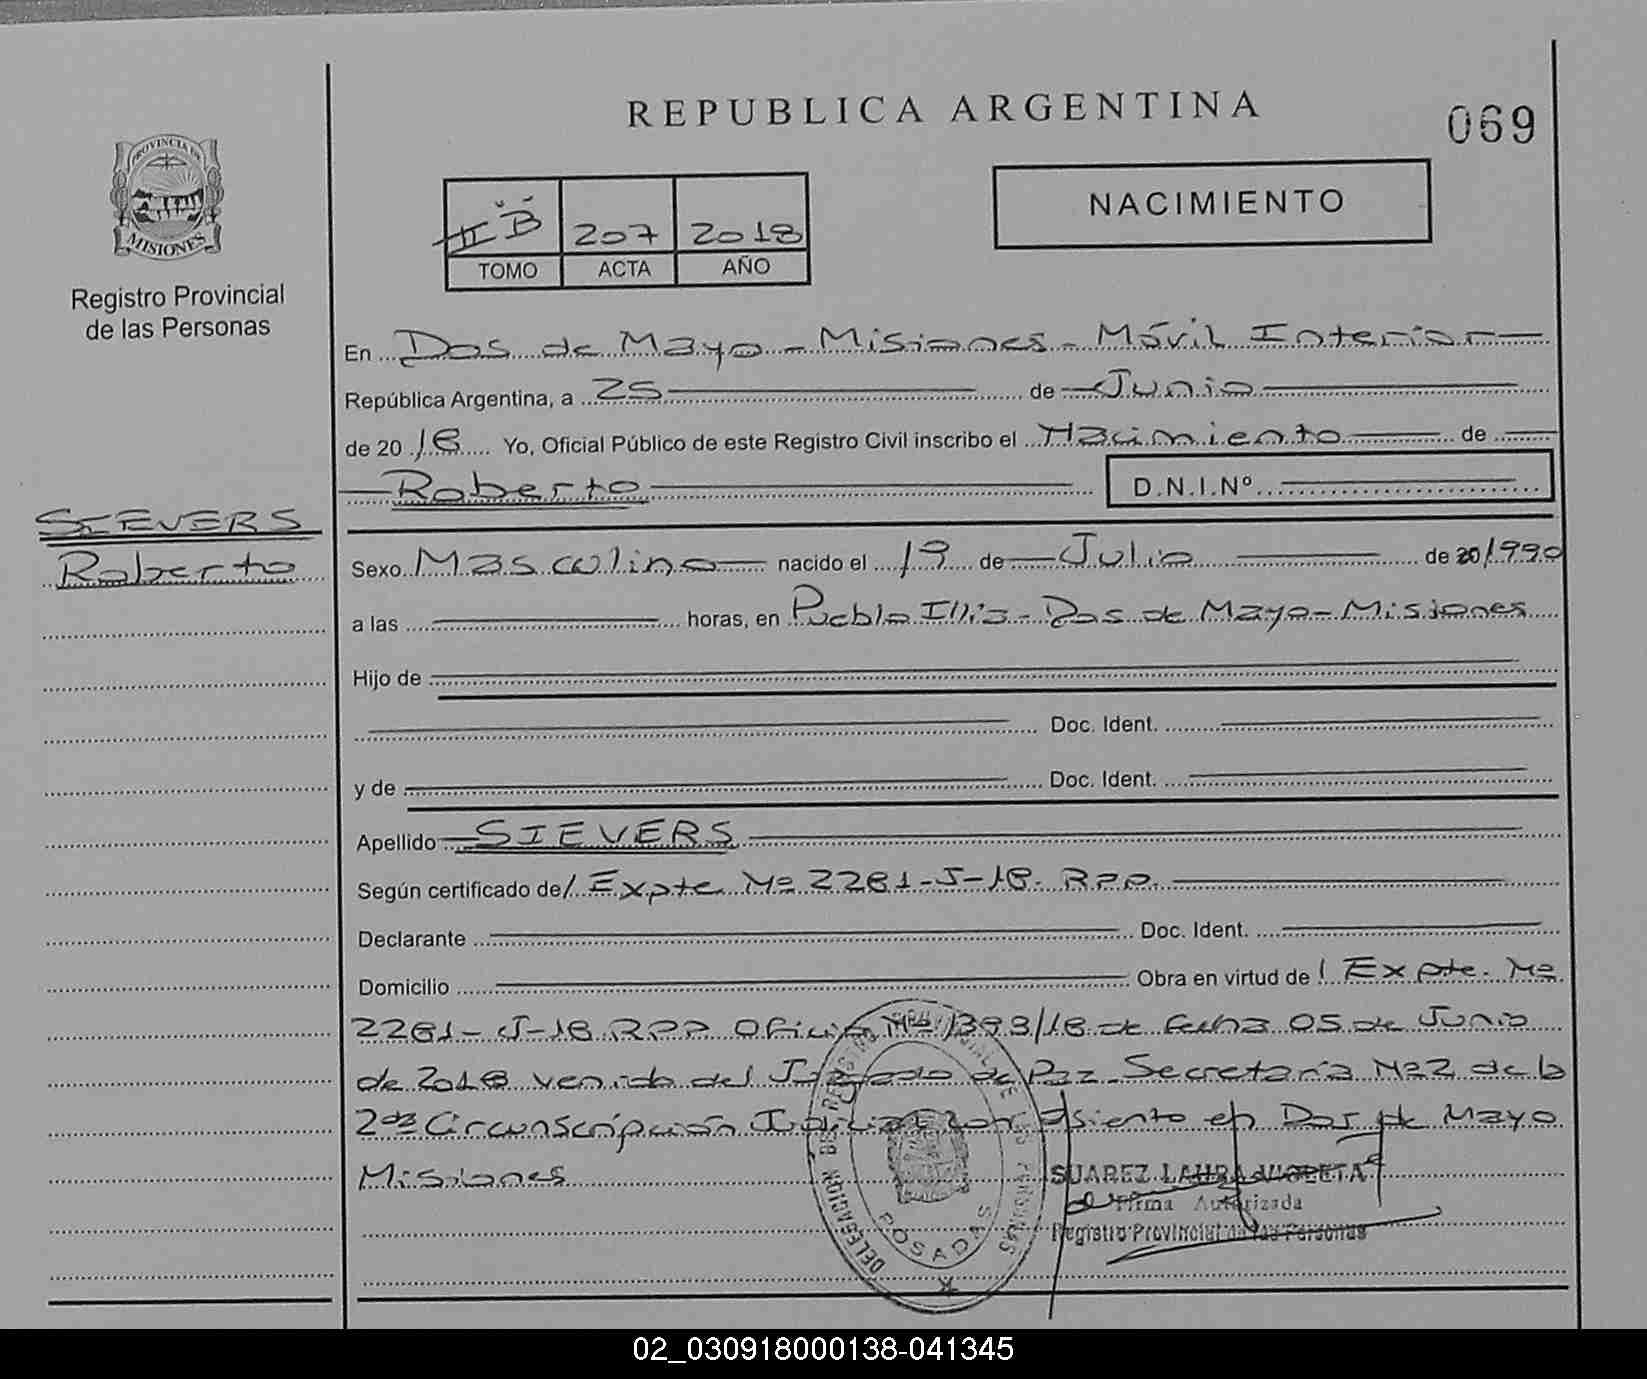 REPUBLICA ARGENTINA
069
PROVINCIA DE
MISIONES
Registro Provincial
de las Personas
II "B" 207 2018
TOMO ACTA AÑO
NACIMIENTO
En Dos de Mayo - Misiones - Móvil Interior
República Argentina, a 25 de Junio
de 2018 Yo, Oficial Público de este Registro Civil inscribo el Nacimiento de
Roberto D.N.I.Nº
SIEVERS
Roberto
Sexo Masculino nacido el 19 de Julio de 20/1990
a las horas, en Pueblo Illia - Dos de Mayo - Misiones
Hijo de
Doc. Ident.
y de Doc. Ident.
Apellido SIEVERS
Según certificado de/ Expte Nº 2281-J-18. RPP.
Declarante Doc. Ident.
Domicilio Obra en virtud de! Expte. Nº
2281-J-18 RPP Oficio Nº 1393/18 de fecha 05 de Junio
de 2018 venido del Juzgado de Paz Secretaría Nº2 de la
2da Circunscripción Judicial con asiento en Dos de Mayo
Misiones
DELEGACION DEL REGISTRO PROVINCIAL DE LAS PERSONAS
POSADAS
SUAREZ LAURA VIOLETA
Firma Autorizada
Registro Provincial de las Personas
02_030918000138-041345